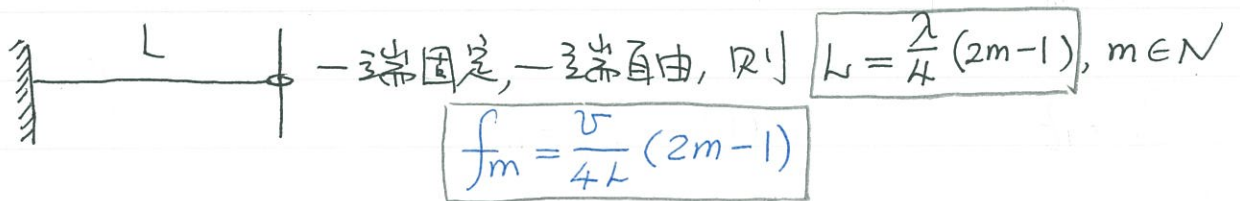 L
一端固定,一端自由, 则 L = λ/4 (2m-1), m∈N
fm = v/4L (2m-1)